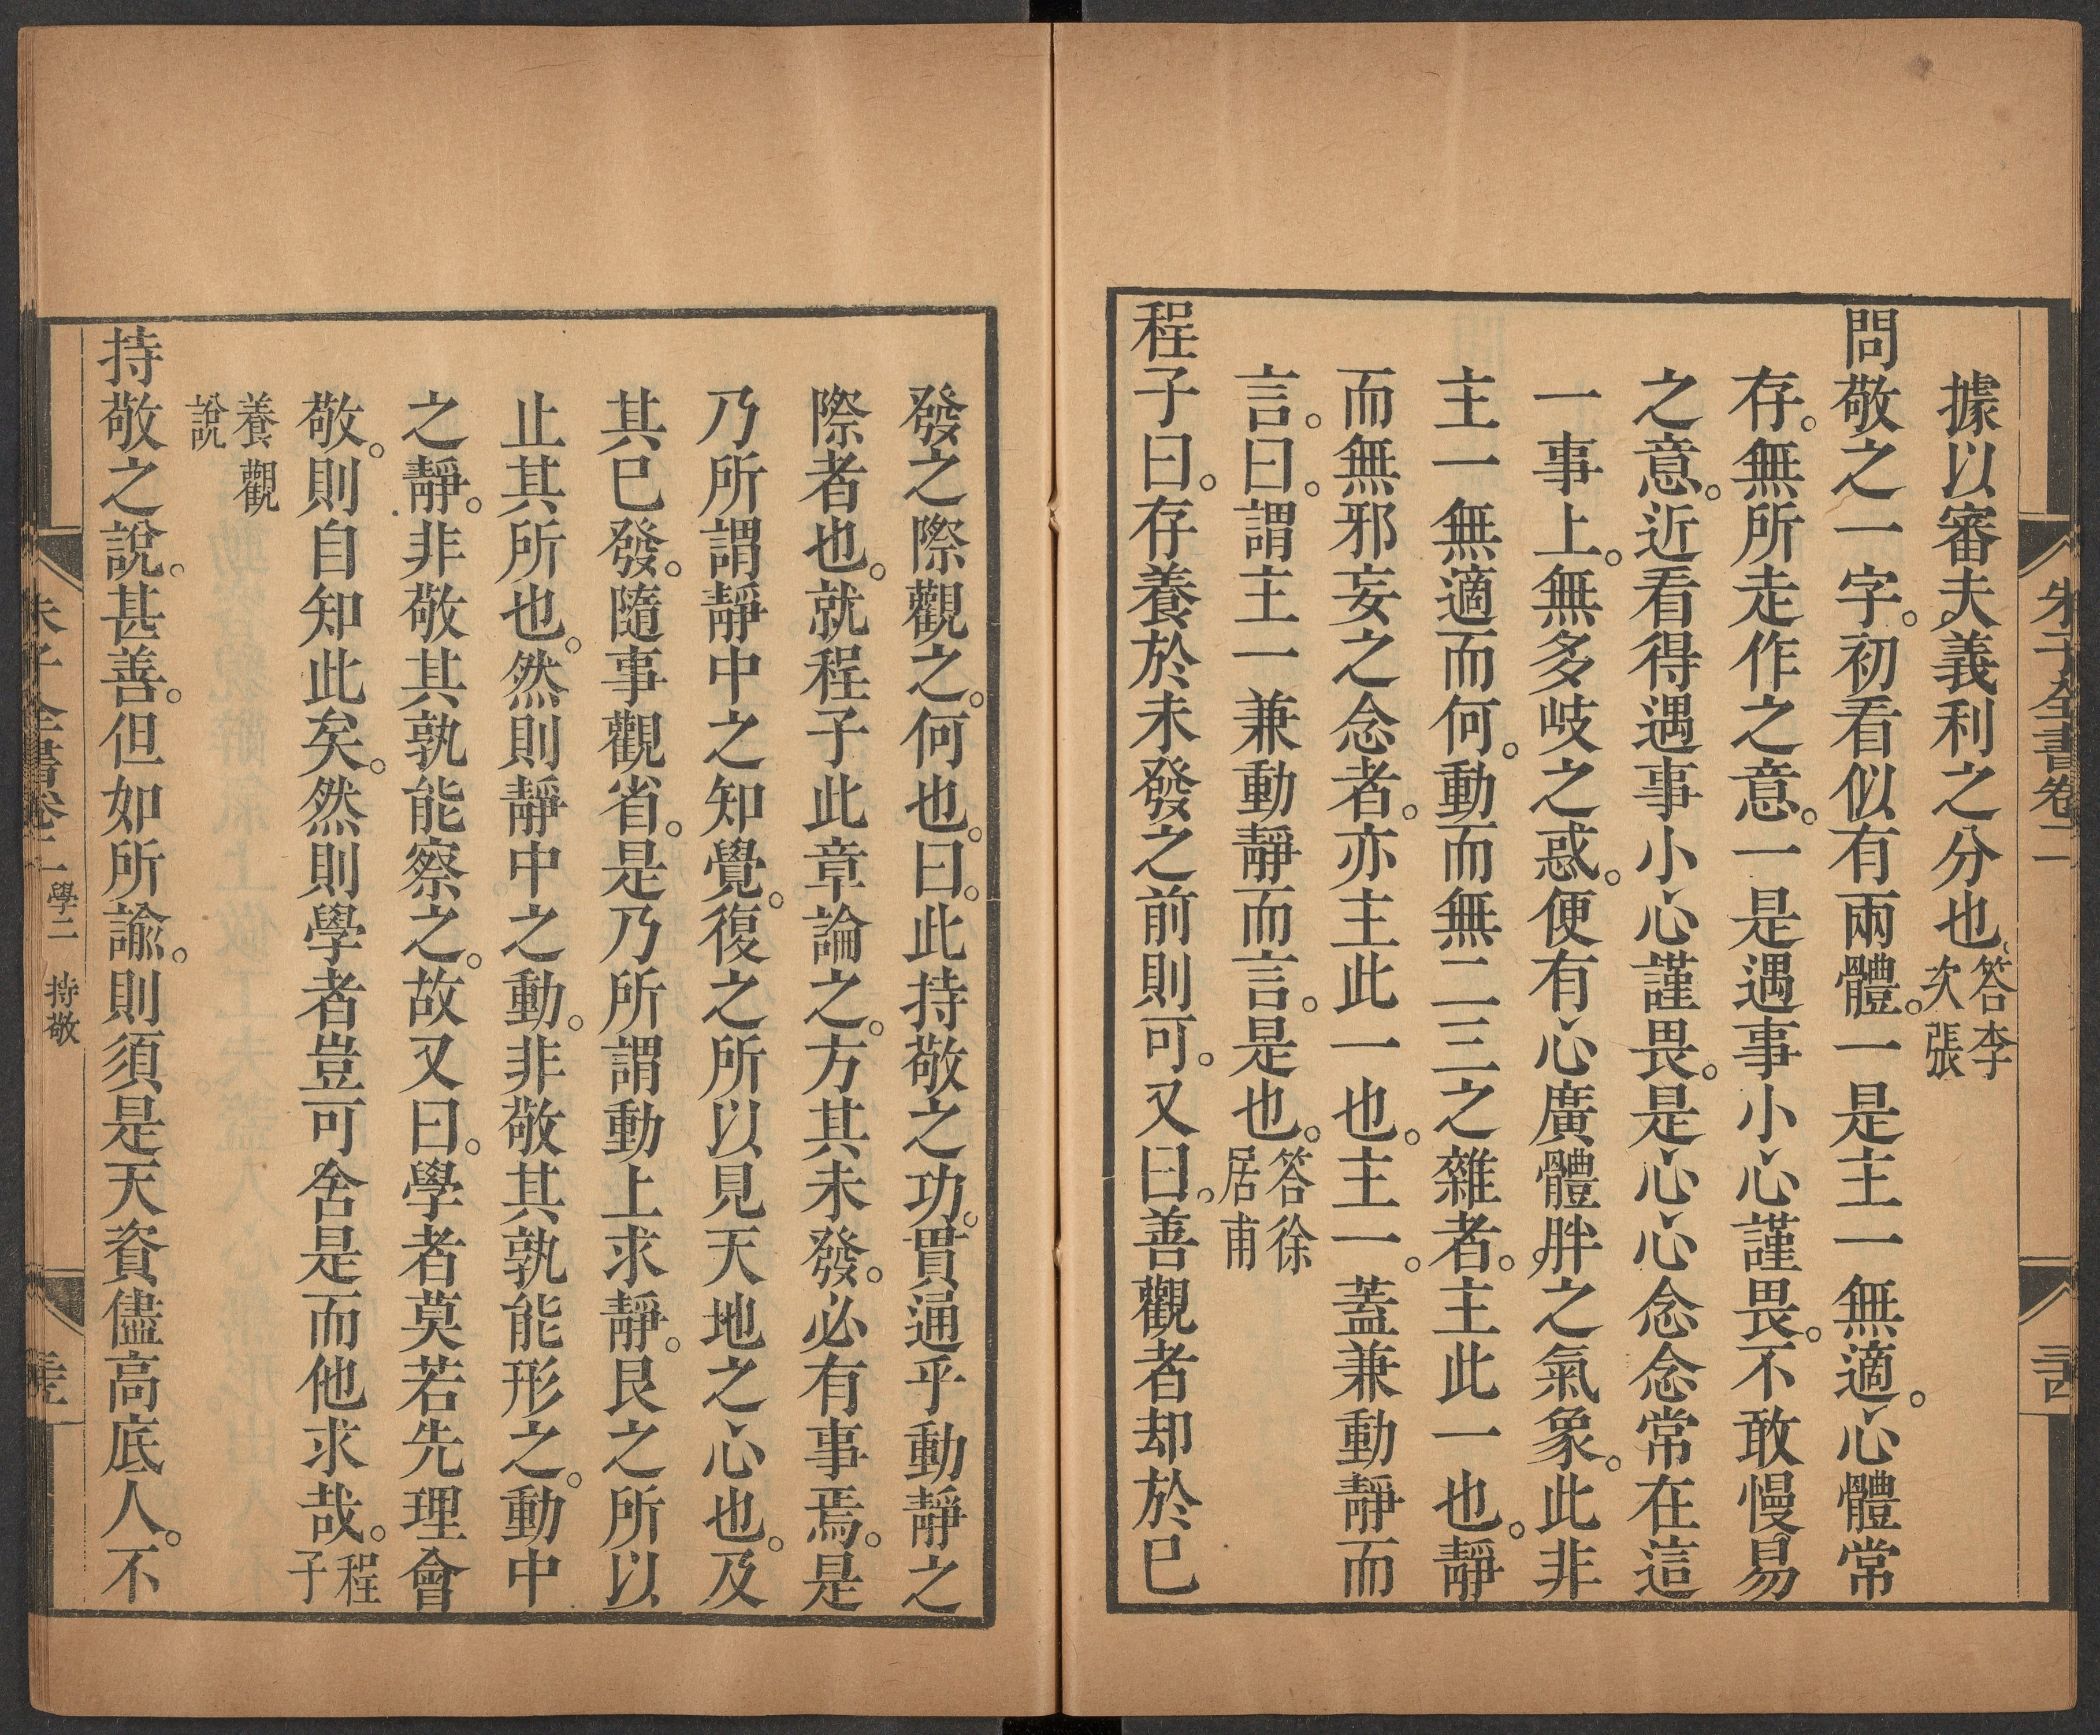 朱子全書卷二
據以審夫義利之分也答李次張
問敬之一字。初看似有兩體。一是主一無適。心體常
存。無所走作之意。一是遇事小心謹畏。不敢慢易
之意。近看得遇事小心謹畏。是心心念念常在這
一事上。無多歧之惑。便有心廣體胖之氣象。此非
主一無適而何。動而無二三之雜者。主此一也。靜
而無邪妄之念者。亦主此一也。主一。蓋兼動靜而
言。曰。謂主一兼動靜而言。是也。答徐居甫
程子曰。存養於未發之前則可。又曰。善觀者却於已
發之際觀之。何也。曰。此持敬之功。貫通乎動靜之
際者也。就程子此章論之。方其未發。必有事焉。是
乃所謂靜中之知覺。復之所以見天地之心也。及
其已發。隨事觀省。是乃所謂動上求靜。艮之所以
止其所也。然則靜中之動。非敬其孰能形之。動中
之靜。非敬其孰能察之。故又曰。學者莫若先理會
敬。則自知此矣。然則學者豈可舍是而他求哉。程子
養觀說
持敬之說。甚善。但如所諭。則須是天資儘高底人。不
朱子全書卷二 學二 持敬